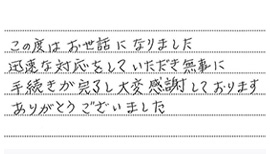 この度はお世話になりました
迅速な対応をしていただき無事に
手続きが完了し大変感謝しております
ありがとうございました